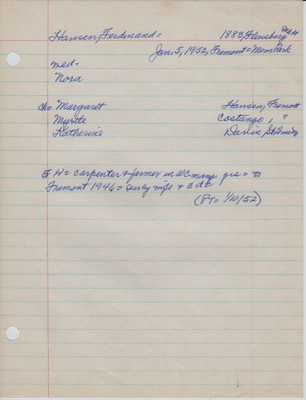 Hansen, Ferdinand = 1883, Flensborg
Jan. 5, 1952, Fremont = Mem. Park
med =
Nora
ch = Margaret Hansen, Fremont
Myrtle Costango, "
Katherine Davis,
F H = carpenter & farmer in WC many yrs = to
Fremont 1946 = Surv by wife & 3 dt
(PT = 1/10/52)